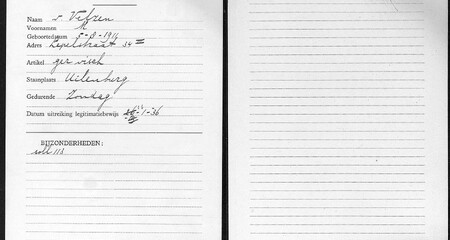 Naam s. Vefren
Voornamen
Geboortedatum 5-8-1914
Adres Lepelstraat 34 II
Artikel ger visch
Staanplaats Uilenburg
Gedurende Zondag
Datum uitreiking legitimatiebewijs -1-36
BIJZONDERHEDEN: